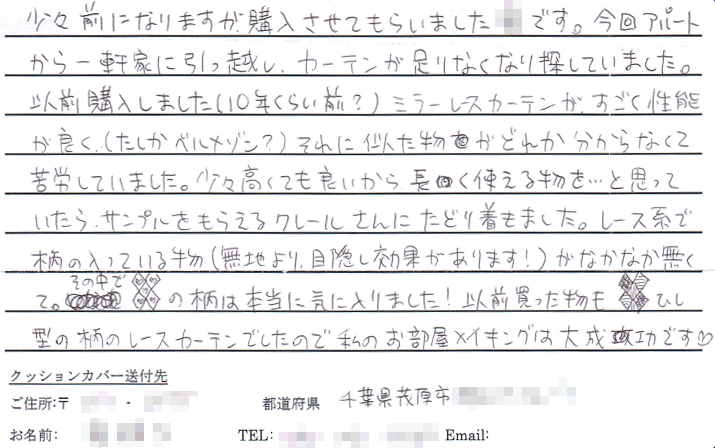 少々前になりますが購入させてもらいました です。今回アパート
から一軒家に引っ越し、カーテンが足りなくなり探していました。
以前購入しました(10年くらい前?)ミラーレースカーテンが、すごく性能
が良く、(たしかベルメゾン?)それに似た物がどれか分からなくて
苦労していました。少々高くても良いから長く使える物を…と思って
いたら、サンプルをもらえるクレールさんにたどり着きました。レース系で
柄の入っている物(無地より、目隠し効果があります!)がなかなか無く
て。その中で の柄は本当に気に入りました!以前買った物も ひし
型の柄のレースカーテンでしたので私のお部屋メイキングは大成功です♡
クッションカバー送付先
ご住所:〒 - 都道府県 千葉県茂原市
お名前: TEL: Email: